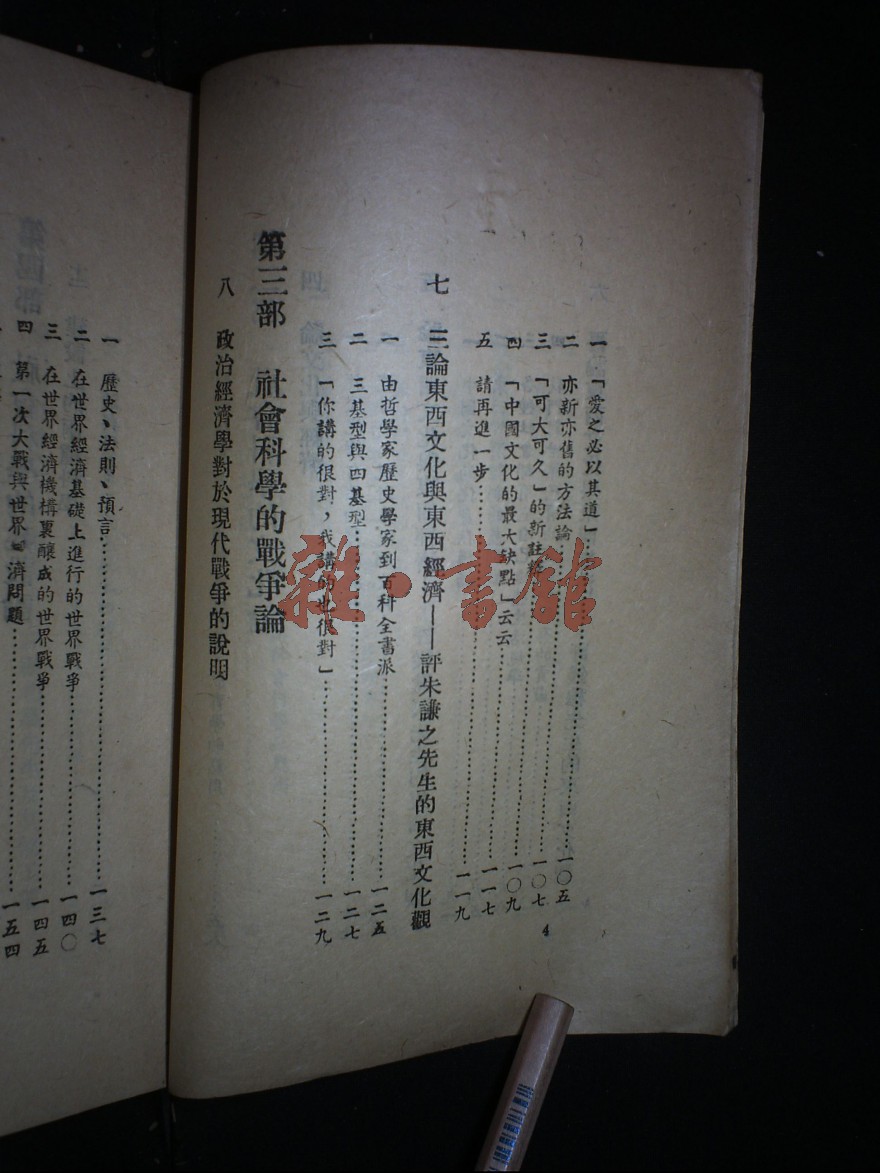 一 「愛之必以其道」……一〇五
二 亦新亦舊的方法論……一〇七
三 「可大可久」的新註釋……一〇九
四 「中國文化的最大缺點」云云……一一七
五 請再進一步……一一九
七 三論東西文化與東西經濟——評朱謙之先生的東西文化觀
一 由哲學家歷史學家到百科全書派……一二五
二 三基型與四基型……一二七
三 「你講的很對，我講的也很對」……一二九
第三部 社會科學的戰爭論
八 政治經濟學對於現代戰爭的說明
4
一 歷史、法則、預言……一三七
二 在世界經濟基礎上進行的世界戰爭……一四〇
三 在世界經濟機構裏釀成的世界戰爭……一四五
四 第一次大戰與世界 濟問題……一五四
雜·書館